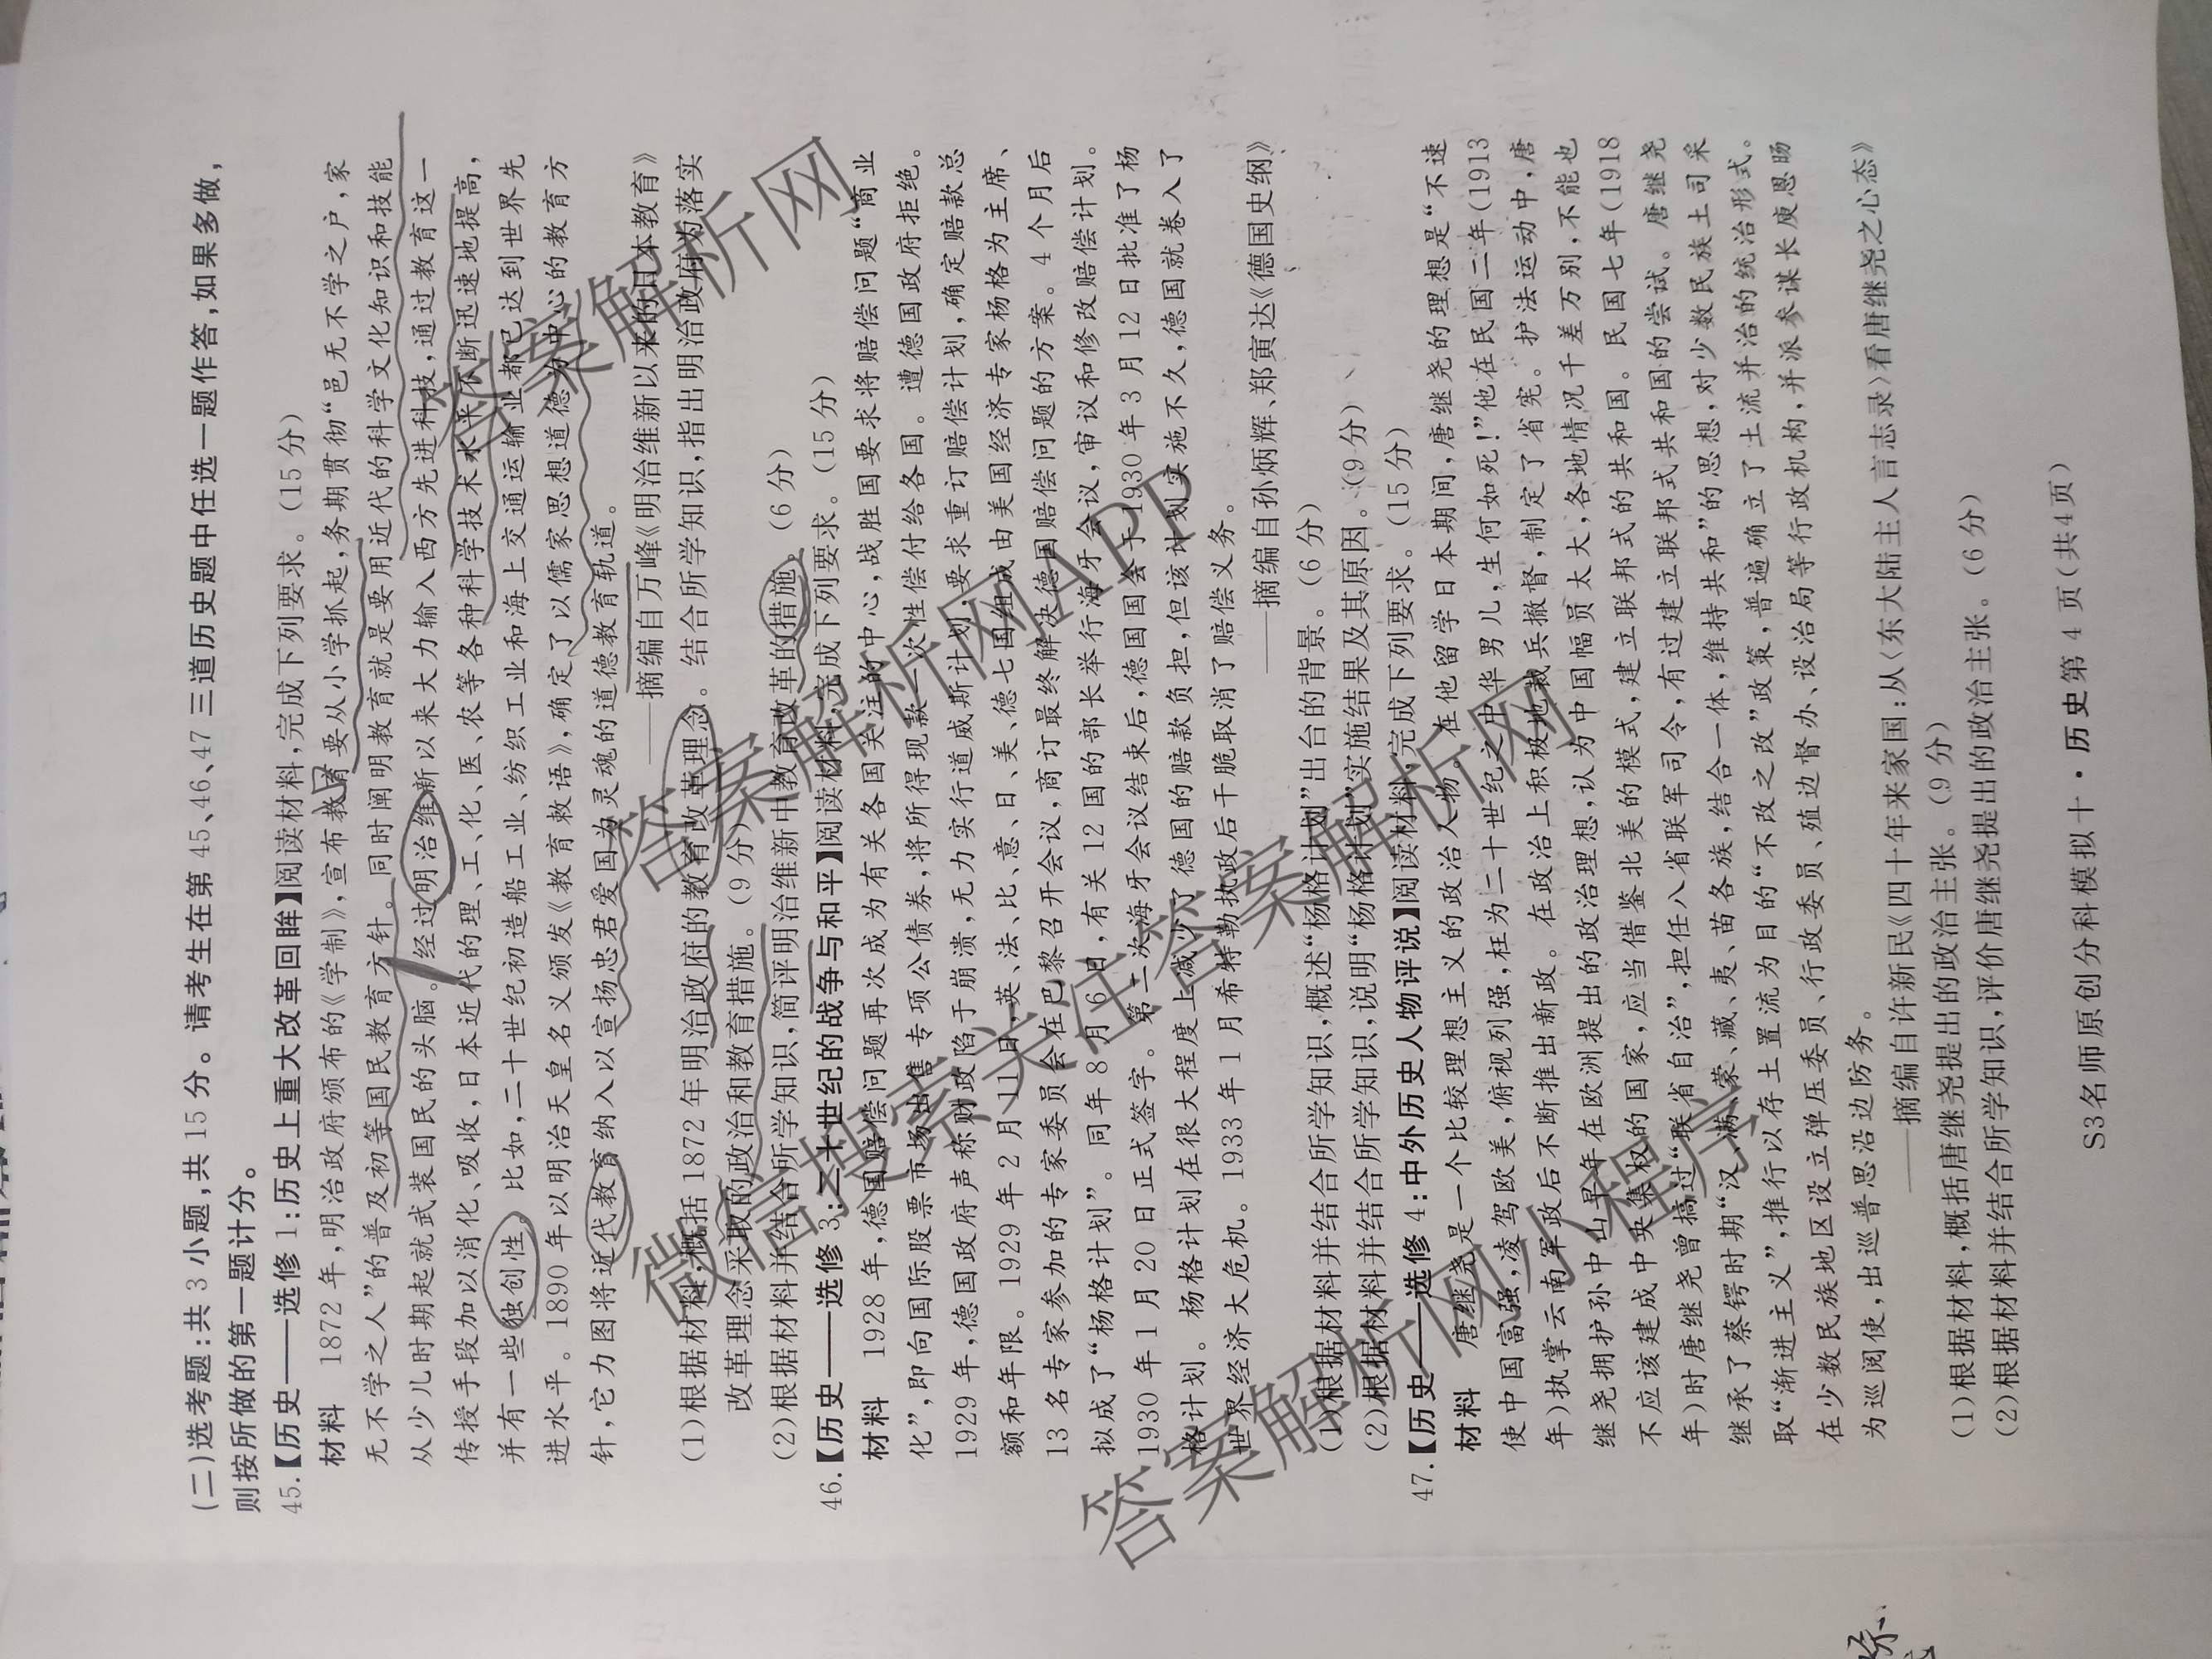 (二)选考题:共 3 小题,共 15 分。请考生在第 45、46、47 三道历史题中任选一题作答,如果多做,
则按所做的第一题计分。
45.【历史——选修 1:历史上重大改革回眸】阅读材料,完成下列要求。(15 分)
材料 1872 年,明治政府颁布的《学制》,宣布教育要从小学抓起,务期贯彻“邑无不学之户,家
无不学之人”的普及初等国民教育方针。同时阐明教育就是要用近代的科学文化知识和技能
从少儿时期起就武装国民的头脑。经过明治维新以来大力输入西方先进科技,通过教育这一
传授手段加以消化、吸收,日本近代的理、工、化、医、农等各种科学技术水平不断迅速地提高,
并有一些独创性。比如,二十世纪初造船工业、纺织工业和海上交通运输业都已达到世界先
进水平。1890 年以明治天皇名义颁发《教育敕语》,确定了以儒家思想道德为中心的教育方
针,它力图将近代教育纳入以宣扬忠君爱国为灵魂的道德教育轨道。
——摘编自万峰《明治维新以来的日本教育》
(1)根据材料,概括 1872 年明治政府的教育改革理念。结合所学知识,指出明治政府为落实
改革理念采取的政治和教育措施。(9 分)
(2)根据材料并结合所学知识,简评明治维新中教育改革的措施。(6 分)
46.【历史——选修 3:二十世纪的战争与和平】阅读材料,完成下列要求。(15 分)
材料 1928 年,德国赔偿问题再次成为有关各国关注的中心,战胜国要求将赔偿问题“商业
化”,即向国际股票市场出售专项公债券,将所得现款一次性偿付给各国。遭德国政府拒绝。
1929 年,德国政府声称财政陷于崩溃,无力实行道威斯计划,要求重订赔偿计划,确定赔款总
额和年限。1929 年 2 月 11 日,英、法、比、意、日、美、德七国组成由美国经济专家杨格为主席、
13 名专家参加的专家委员会在巴黎召开会议,商订最终解决德国赔偿问题的方案。4 个月后
拟成了“杨格计划”。同年 8 月 6 日,有关 12 国的部长举行海牙会议,审议和修改赔偿计划。
1930 年 1 月 20 日正式签字。第二次海牙会议结束后,德国国会于 1930 年 3 月 12 日批准了杨
格计划。杨格计划在很大程度上减少了德国的赔款负担,但该计划实施不久,德国就卷入了
世界经济大危机。1933 年 1 月希特勒执政后干脆取消了赔偿义务。
——摘编自孙炳辉、郑寅达《德国史纲》
(1)根据材料并结合所学知识,概述“杨格计划”出台的背景。(6 分)
(2)根据材料并结合所学知识,说明“杨格计划”实施结果及其原因。(9 分)
47.【历史——选修 4:中外历史人物评说】阅读材料,完成下列要求。(15 分)
材料 唐继尧是一个比较理想主义的政治人物。在他留学日本期间,唐继尧的理想是“不速
使中国富强,凌驾欧美,俯视列强,枉为二十世纪之中华男儿,生何如死!”他在民国二年(1913
年)执掌云南军政后不断推出新政。在政治上积极地裁兵撤督,制定了省宪。护法运动中,唐
继尧拥护孙中山早年在欧洲提出的政治理想,认为中国幅员太大,各地情况千差万别,不能也
不应该建成中央集权的国家,应当借鉴北美的模式,建立联邦式的共和国。民国七年(1918
年)时唐继尧曾搞过“联省自治”,担任八省联军司令,有过建立联邦式共和国的尝试。唐继尧
继承了蔡锷时期“汉、满、蒙、藏、夷、苗各族,结合一体,维持共和”的思想,对少数民族土司采
取“渐进主义”,推行以存土置流为目的“不改之改”政策,普遍确立了土流并治的统治形式。
在少数民族地区设立弹压委员、行政委员、殖边督办、设治局等行政机构,并派参谋长庾恩旸
为巡阅使,出巡普思沿边防务。
——摘编自许新民《四十年来家国:从〈东大陆主人言志录〉看唐继尧之心态》
(1)根据材料,概括唐继尧提出的政治主张。(9 分)
(2)根据材料并结合所学知识,评价唐继尧提出的政治主张。(6 分)
S3名师原创分科模拟十·历史第 4 页(共4页)
答案解析网
微信搜索关注答案解析网APP
答案解析网小程序